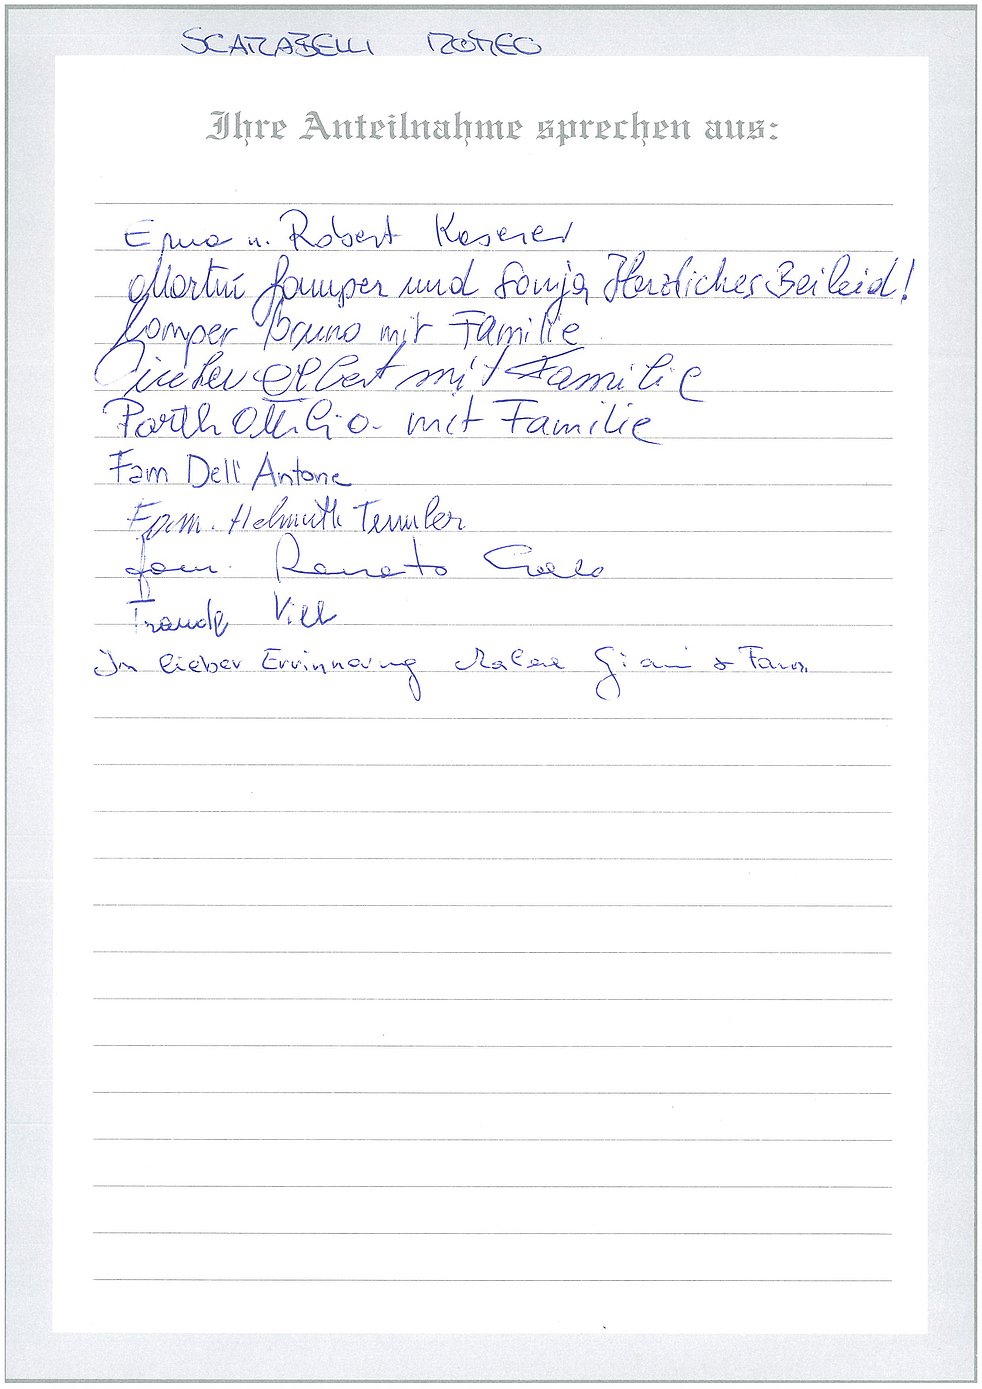 SCARABELLI ROMEO
Ihre Anteilnahme sprechen aus:
Erna u. Robert Kaserer
Martin Gamper und Sonja Herzliches Beileid!
Gamper Bruno mit Familie
Albert mit Familie
Parth Ottilia mit Familie
Fam Dell'Antone
Fam. Helmuth
Fam. Renato
Traudl
In lieber Errinnerung Gianni & Fam